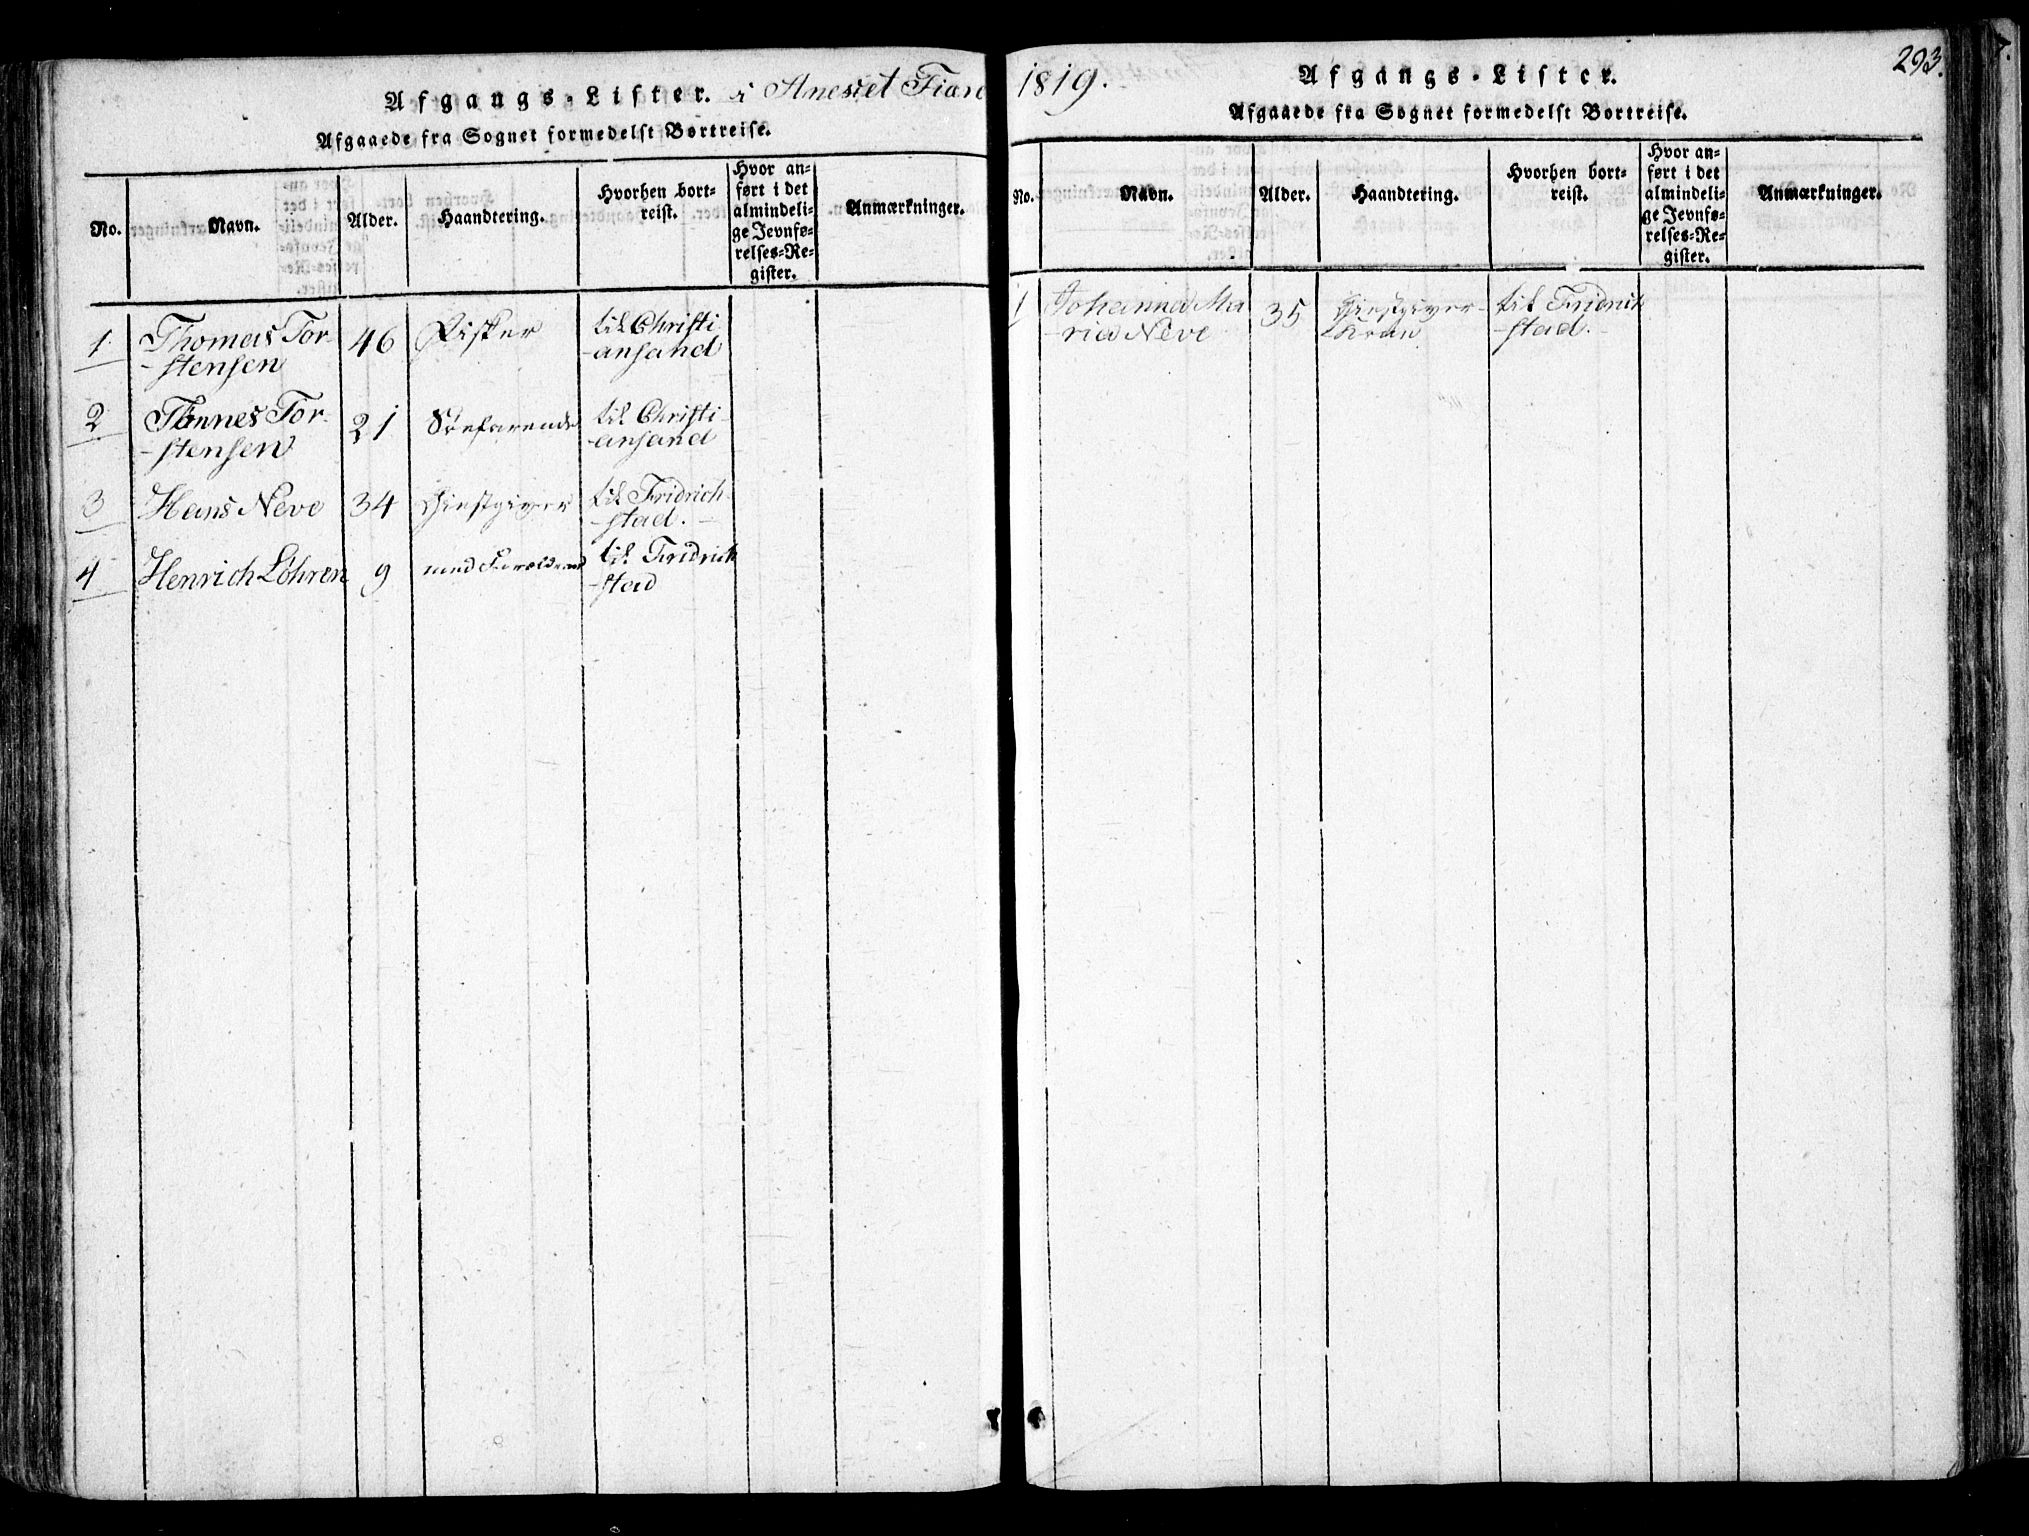 Afgangs-Lister. i Anesiet Fiere
Afgaaede fra Sognet formedelst Bortreise.
No.
Navn.
Alder.
Haandtering.
Hvorhen bort-
reist.
Hvor an-
ført i det
almindeli-
ge Jevnfø-
relses-Re-
gister.
Anmærkninger.
1 Thomas Tor- 46 Fisker til Christi
-stensen -ansand
2 Tønnes Tor- 21 Søefarende til Christi
-stensen -ansand
3 Hans Neve 34 Giestgiver til Fridrich
-stad.
4 Henrich Löhren 9 med Forældrene til Fridrich
-stad
1819.
Afgangs-Lister.
293.
Afgaaede fra Sognet formedelst Bortreise.
No.
Navn.
Alder.
Haandtering.
Hvorhen bort-
reist.
Hvor an-
ført i det
almindeli-
ge Jevnfø-
relses-Re-
gister.
Anmærkninger.
1 Johanna Ma 35 Giestgiver- til Fridrich
-ria Neve Kone -stad.